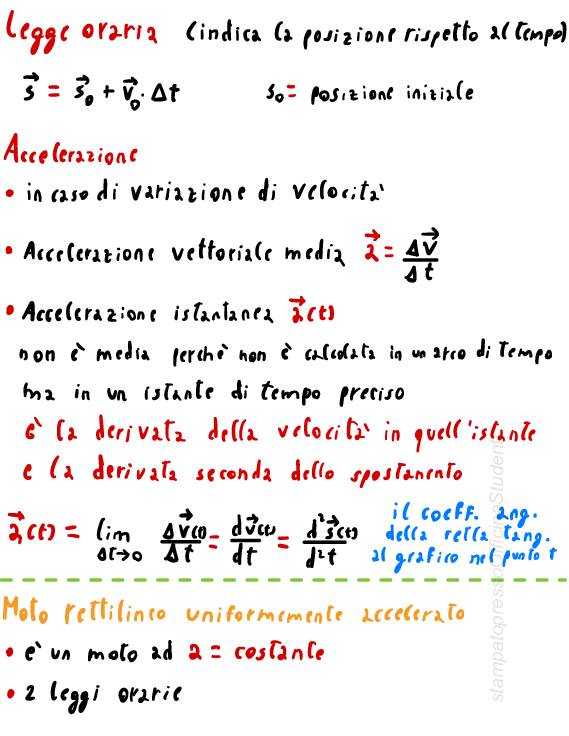 Legge oraria (indica la posizione rispetto al tempo)
s⃗ = s⃗₀ + v⃗₀ · Δt s₀ = posizione iniziale
Accelerazione
• in caso di variazione di velocità
• Accelerazione vettoriale media a⃗ = Δv⃗/Δt
• Accelerazione istantanea a⃗(t)
non è media perchè non è calcolata in un arco di tempo
ma in un istante di tempo preciso
è la derivata della velocità in quell'istante
e la derivata seconda dello spostamento
a⃗(t) = lim Δt→0 Δv⃗(t)/Δt = dv⃗(t)/dt = d²s⃗(t)/d²t
il coeff. ang.
della retta tang.
al grafico nel punto t
Moto rettilineo uniformemente accelerato
• è un moto ad a = costante
• 2 leggi orarie